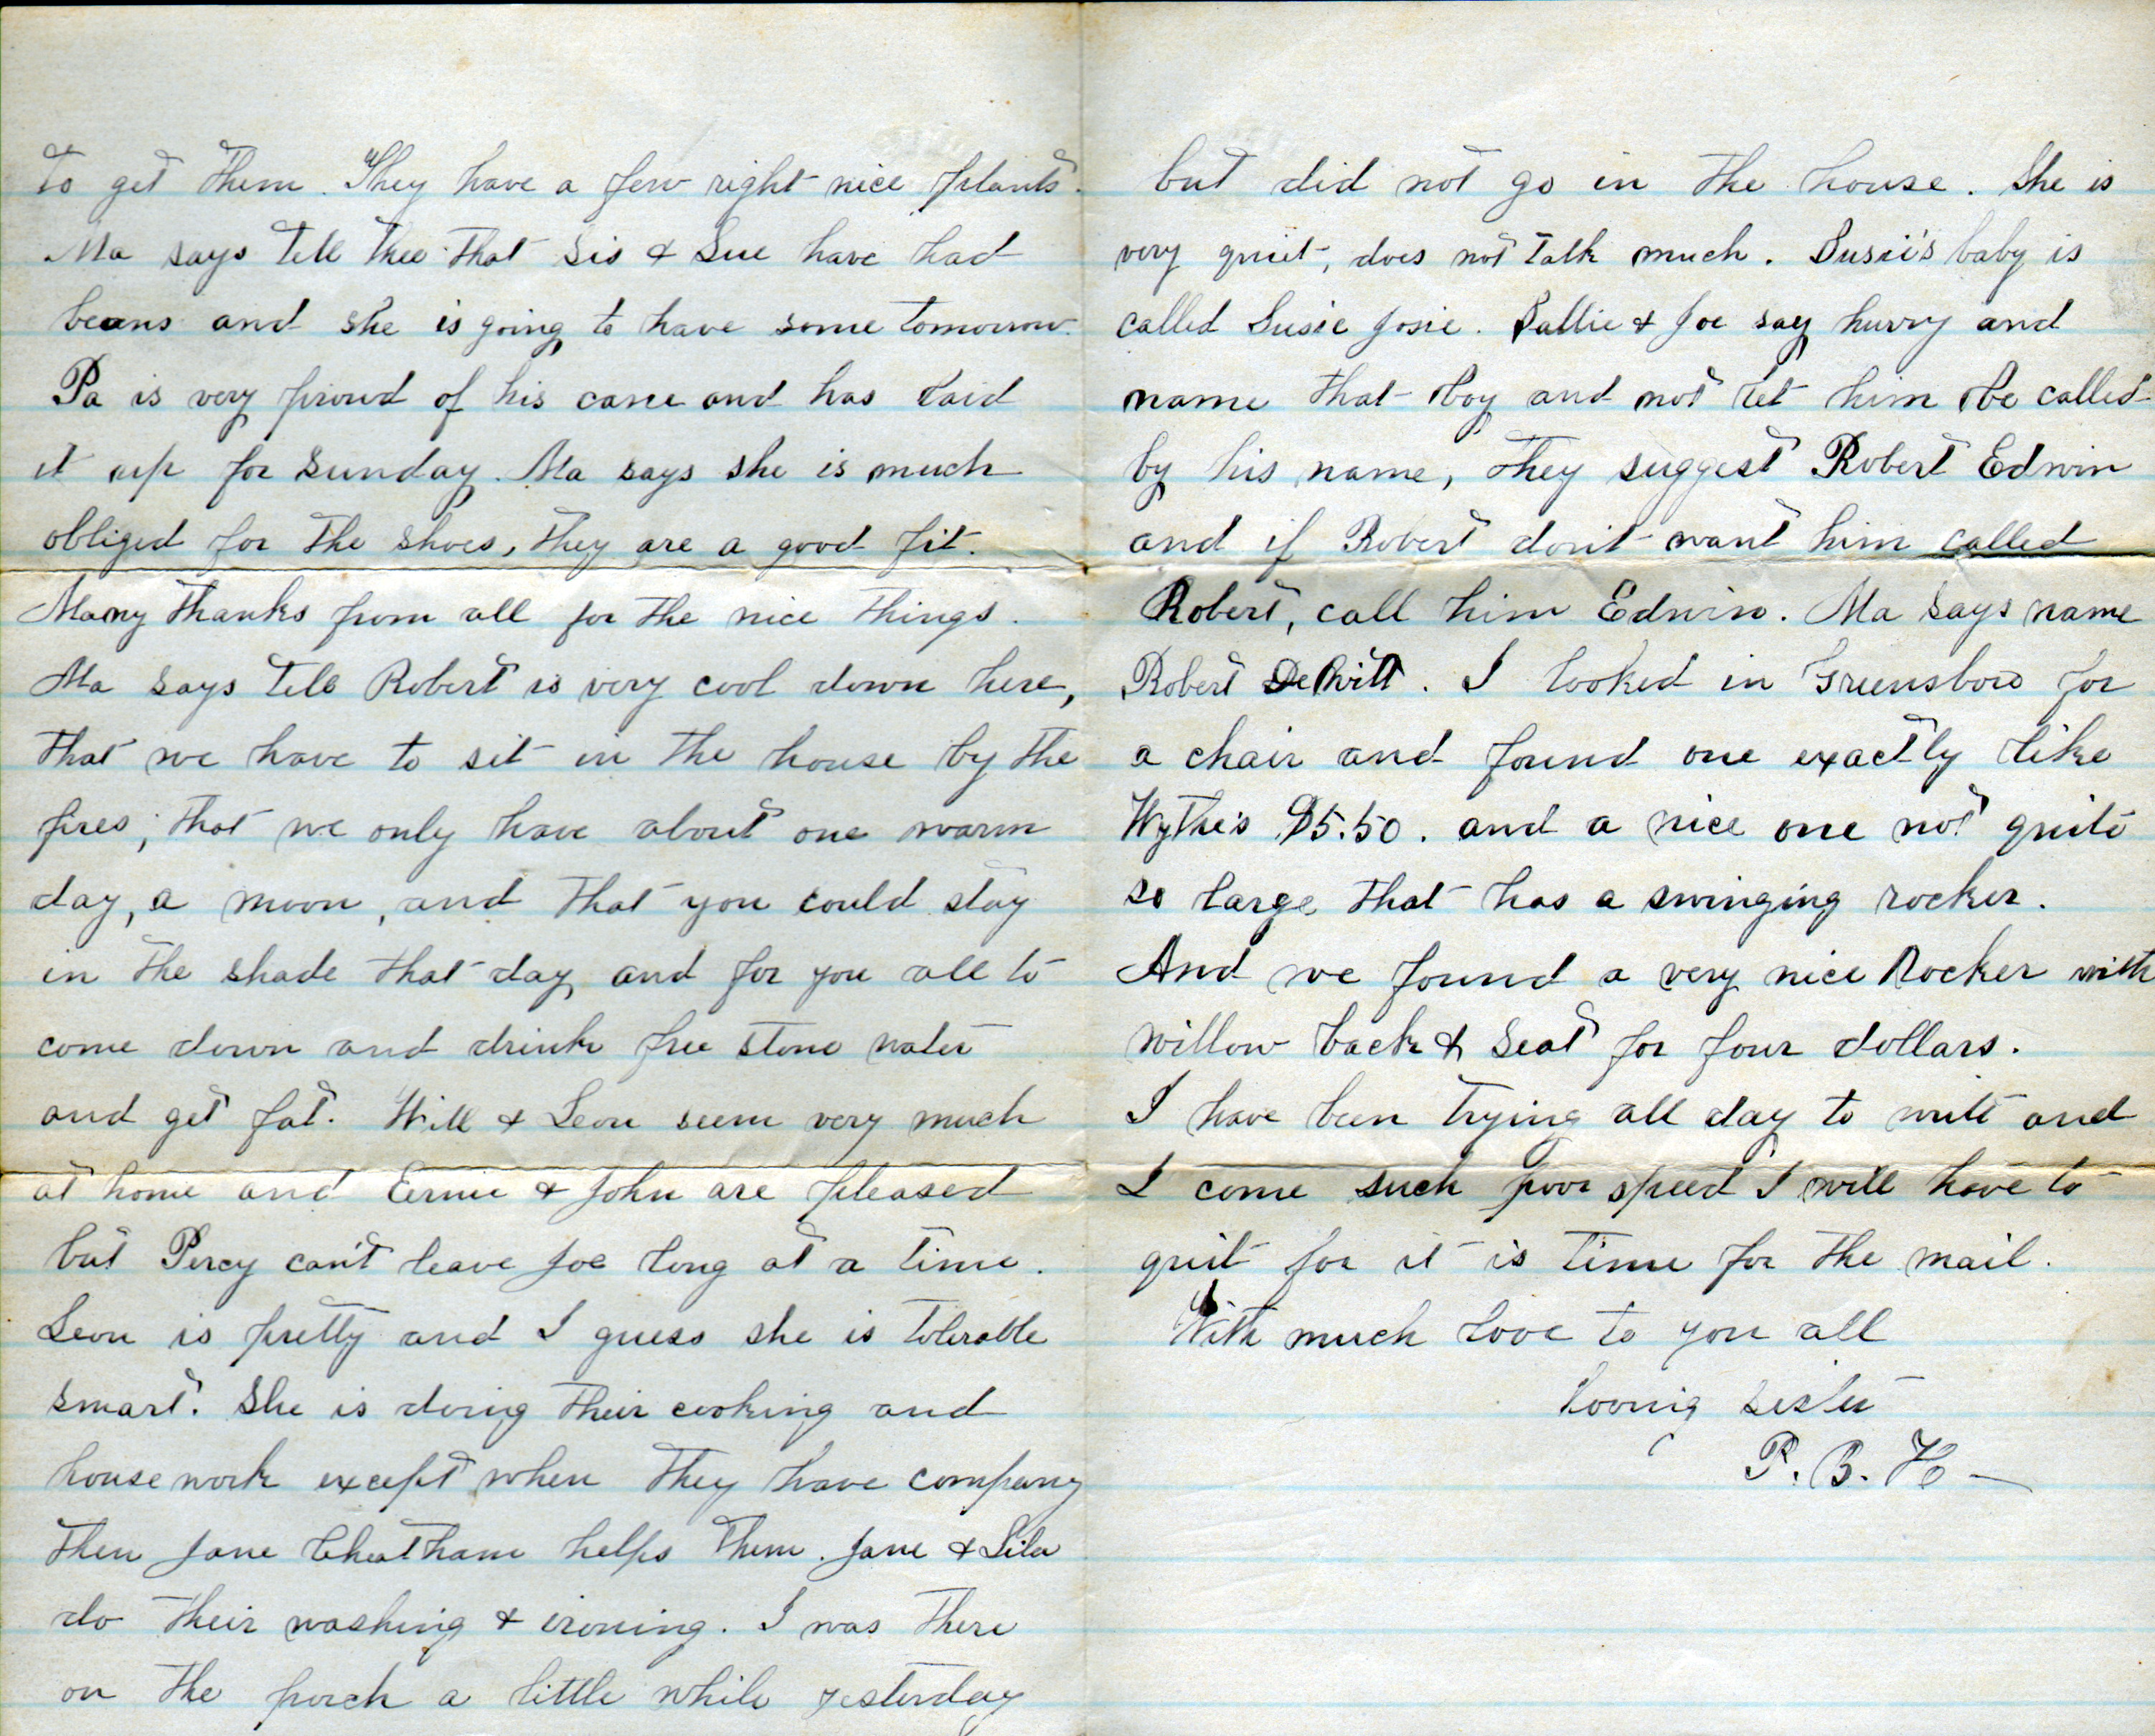 to get them. They have a few right nice plants.
Ma says tell thee that Sis & Sue have had
beans and she is going to have some tomorrow.
Pa is very proud of his cane and has laid
it up for Sunday. Ma says she is much
obliged for the shoes, they are a good fit.
Many thanks from all for the nice things.
Ma says tell Robert is very cool down here,
that we have to sit in the house by the
fires; that we only have about one warm
day, a moon, and that you could stay
in the shade that day, and for you all to
come down and drink free stone water
and get fat. Will & Leon seem very much
at home and Ernie & John are pleased
but Percy can't leave Joe long at a time.
Leon is pretty and I guess she is tolerable
smart. She is doing their cooking and
house work except when they have company
then Jane Cheatham helps them. Jane & Lila
do their washing & ironing. I was there
on the porch a little while yesterday
but did not go in the house. She is
very quiet, does not talk much. Susie's baby is
called Susie Josie. Sallie & Joe say hurry and
name that boy and not let him be called
by his name, they suggest Robert Edwin
and if Robert don't want him called
Robert, call him Edwin. Ma says name
Robert DeWitt. I looked in Greensboro for
a chair and found one exactly like
Wythe's $5.50. and a nice one not quite
so large that has a swinging rocker.
And we found a very nice Rocker with
willow back & seat for four dollars.
I have been trying all day to write and
I come such poor speed I will have to
quit for it is time for the mail.
With much love to you all
Loving sister
P. B. H